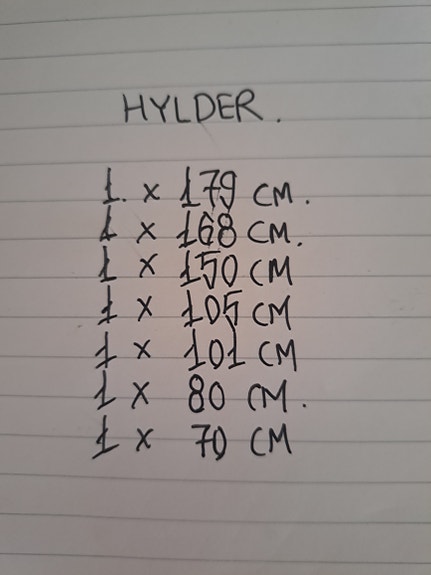 HYLDER.
1. x 179 CM.
1 x 168 CM.
1 x 150 CM
1 x 105 CM
1 x 101 CM
1 x 80 CM.
1 x 70 CM